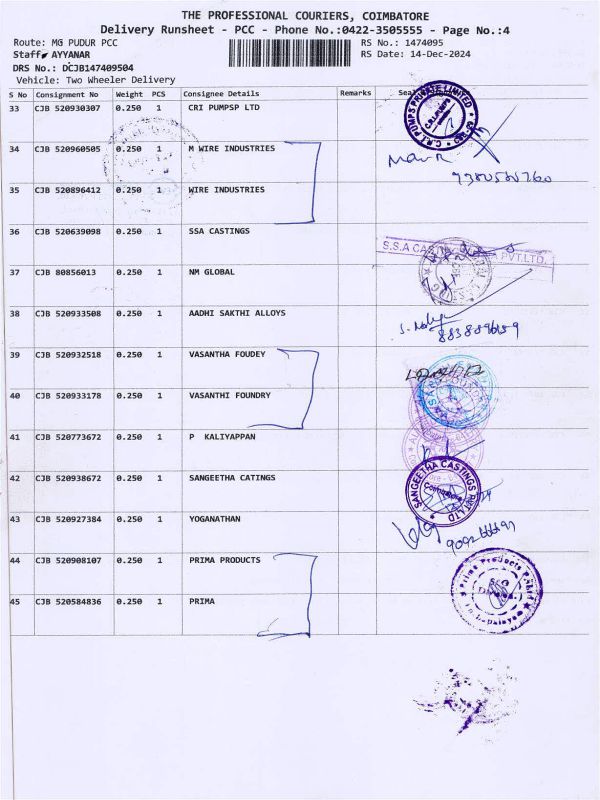 THE PROFESSIONAL COURIERS, COIMBATORE
Delivery Runsheet - PCC - Phone No.:0422-3505555 - Page No.:4
Route: MG PUDUR PCC RS No.: 1474095
Staff: AYYANAR RS Date: 14-Dec-2024
DRS No.: DCJB147409504
Vehicle: Two Wheeler Delivery
S No Consignment No Weight PCS Consignee Details Remarks Seal
33 CJB 520930307 0.250 1 CRI PUMPSP LTD
C.R.I. PUMPS PRIVATE LIMITED
34 CJB 520960505 0.250 1 M WIRE INDUSTRIES
35 CJB 520896412 0.250 1 WIRE INDUSTRIES
36 CJB 520639098 0.250 1 SSA CASTINGS
S.S.A CASTING PVT.LTD.
37 CJB 80856013 0.250 1 NM GLOBAL
38 CJB 520933508 0.250 1 AADHI SAKTHI ALLOYS
39 CJB 520932518 0.250 1 VASANTHA FOUDEY
40 CJB 520933178 0.250 1 VASANTHI FOUNDRY
41 CJB 520773672 0.250 1 P KALIYAPPAN
42 CJB 520938672 0.250 1 SANGEETHA CATINGS
SANGEETHA CASTINGS PVT LTD
Coimbatore
43 CJB 520927384 0.250 1 YOGANATHAN
44 CJB 520908107 0.250 1 PRIMA PRODUCTS
Prima Products
45 CJB 520584836 0.250 1 PRIMA